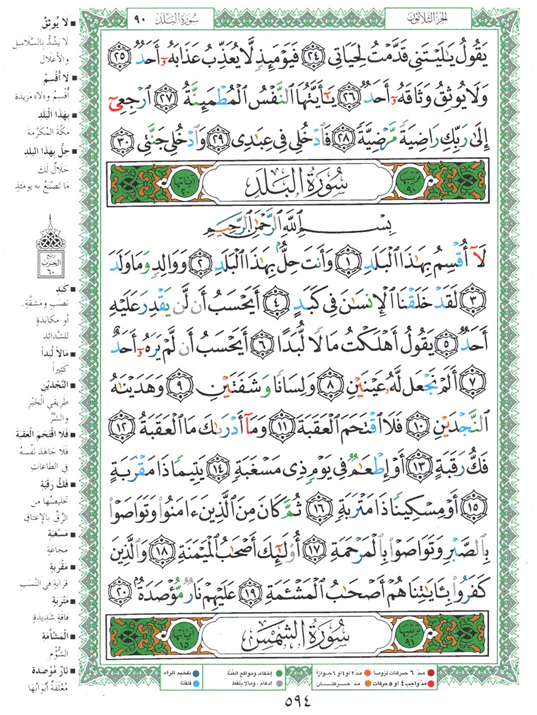 الجزء الثلاثون
سورة البلد ٩٠
يَقُولُ يَٰلَيْتَنِى قَدَّمْتُ لِحَيَاتِى ٢٤ فَيَوْمَئِذٍ لَّا يُعَذِّبُ عَذَابَهُۥٓ أَحَدٌ ٢٥
وَلَا يُوثِقُ وَثَاقَهُۥٓ أَحَدٌ ٢٦ يَٰٓأَيَّتُهَا ٱلنَّفْسُ ٱلْمُطْمَئِنَّةُ ٢٧ ٱرْجِعِىٓ
إِلَىٰ رَبِّكِ رَاضِيَةً مَّرْضِيَّةً ٢٨ فَٱدْخُلِى فِى عِبَٰدِى ٢٩ وَٱدْخُلِى جَنَّتِى ٣٠
ترتيبها ٩٠ سورة البلد آياتها ٢٠
بِسْمِ ٱللَّهِ ٱلرَّحْمَٰنِ ٱلرَّحِيمِ
لَآ أُقْسِمُ بِهَٰذَا ٱلْبَلَدِ ١ وَأَنتَ حِلٌّۢ بِهَٰذَا ٱلْبَلَدِ ٢ وَوَالِدٍ وَمَا وَلَدَ
٣ لَقَدْ خَلَقْنَا ٱلْإِنسَٰنَ فِى كَبَدٍ ٤ أَيَحْسَبُ أَن لَّن يَقْدِرَ عَلَيْهِ
أَحَدٌ ٥ يَقُولُ أَهْلَكْتُ مَالًا لُّبَدًا ٦ أَيَحْسَبُ أَن لَّمْ يَرَهُۥٓ أَحَدٌ
٧ أَلَمْ نَجْعَل لَّهُۥ عَيْنَيْنِ ٨ وَلِسَانًا وَشَفَتَيْنِ ٩ وَهَدَيْنَٰهُ
ٱلنَّجْدَيْنِ ١٠ فَلَا ٱقْتَحَمَ ٱلْعَقَبَةَ ١١ وَمَآ أَدْرَىٰكَ مَا ٱلْعَقَبَةُ ١٢
فَكُّ رَقَبَةٍ ١٣ أَوْ إِطْعَٰمٌ فِى يَوْمٍ ذِى مَسْغَبَةٍ ١٤ يَتِيمًا ذَا مَقْرَبَةٍ
١٥ أَوْ مِسْكِينًا ذَا مَتْرَبَةٍ ١٦ ثُمَّ كَانَ مِنَ ٱلَّذِينَ ءَامَنُوا۟ وَتَوَاصَوْا۟
بِٱلصَّبْرِ وَتَوَاصَوْا۟ بِٱلْمَرْحَمَةِ ١٧ أُو۟لَٰٓئِكَ أَصْحَٰبُ ٱلْمَيْمَنَةِ ١٨ وَٱلَّذِينَ
كَفَرُوا۟ بِـَٔايَٰتِنَا هُمْ أَصْحَٰبُ ٱلْمَشْـَٔمَةِ ١٩ عَلَيْهِمْ نَارٌ مُّؤْصَدَةٌۢ ٢٠
ترتيبها ٩١ سورة الشمس آياتها ١٥
لا يُوثِقُ
لا يشدُّ بالسَّلاسِل
والأغلال
لا أُقْسِمُ
أُقْسِمُ و«لا» مزيدة
بهذا البلد
مكّة المكرّمة
حِلٌّ بهذا البلد
حلالٌ لك
ما تصنع به يومئذ
ربع
الحزب
٦٠
كَبَدٍ
نصب ومشقّة.
أو مكابدة
للشّدائد
مالاً لُبَداً
كثيراً
النَّجْدَيْن
طريقي الخير
والشّر
فلا اقتحم العقبة
فلا جاهد نفسه
في الطاعات
فكّ رقبة
تخليصها من
الرّق بالإعتاق
مسغبة
مجاعة
مقربة
قرابة في النّسب
متربة
فاقة شديدة
المشأمة
الشّؤم
نارٌ مُوصَدة
مغلقة أبوابها
مدّ ٦ حركات لزوماً
مدّ ٢ أو ٤ أو ٦ جوازاً
مدّ واجب ٤ أو ٥ حركات
مدّ حركتان
إخفاء، ومواقع الغُنّة
إدغام، وما لا يُلفظ
تفخيم الراء
قلقلة
٥٩٤